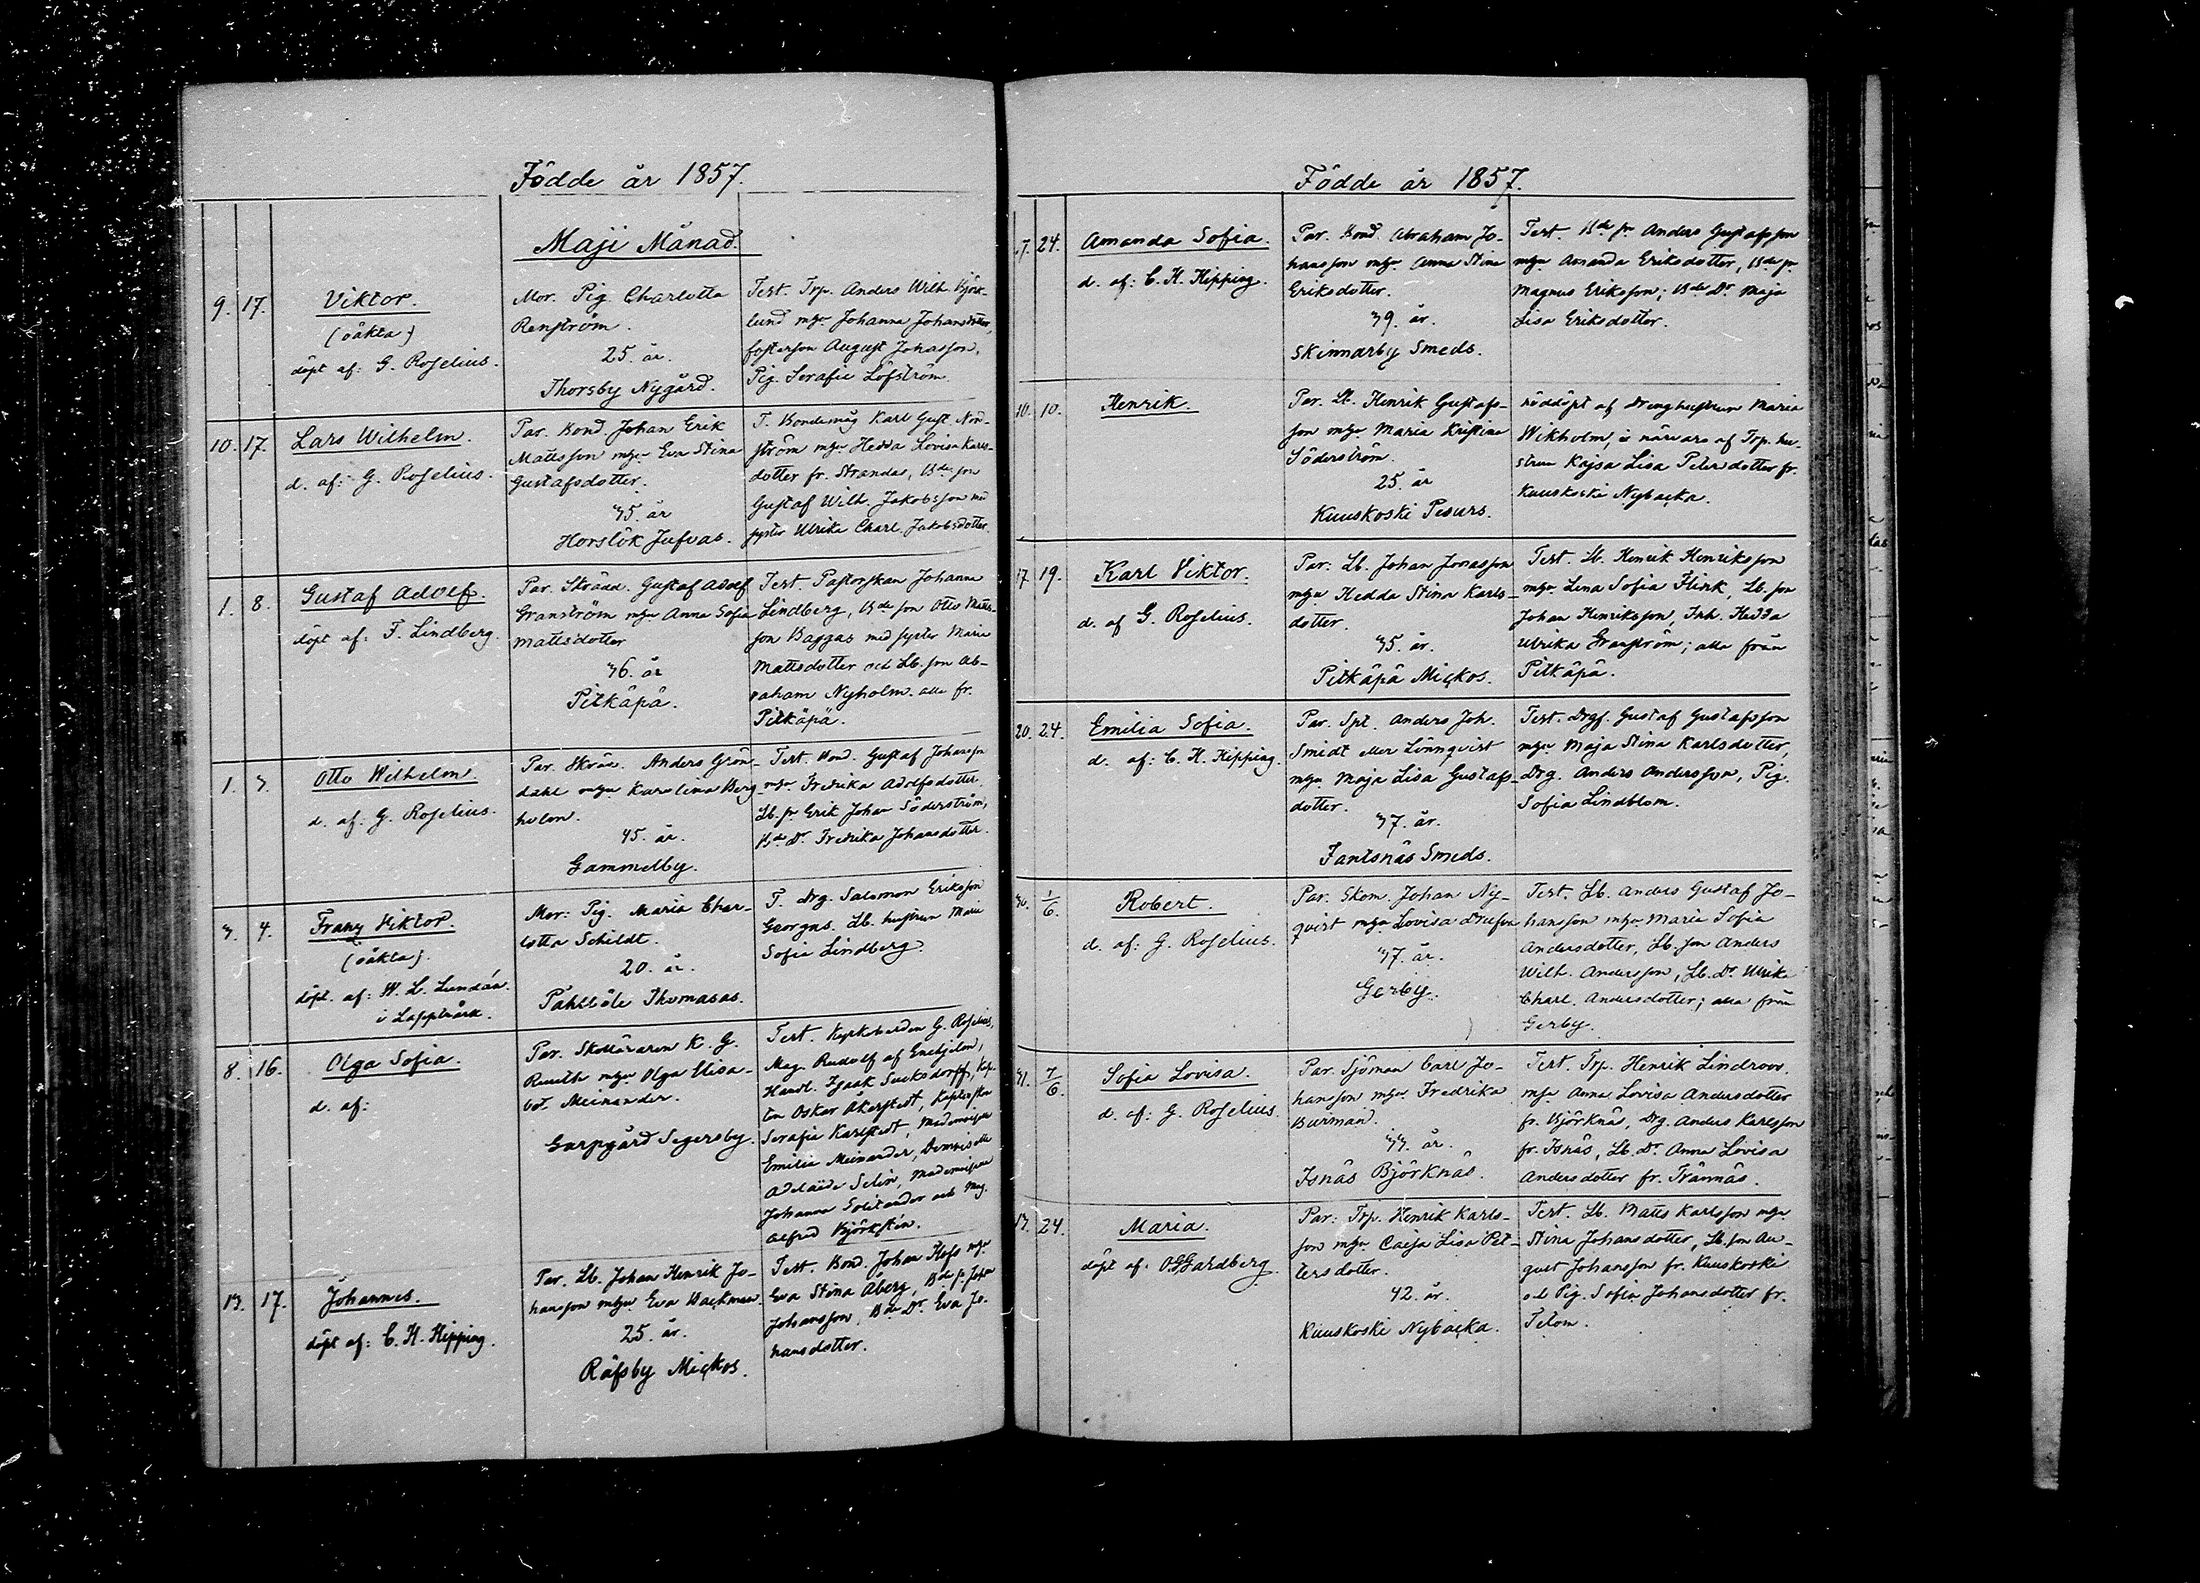 Födde år 1857.
Maji Månad.
9. 17. Viktor.
(oäkta)
döpt af: G. Roselius.
Mor. Pig. Charlotta
Renström.
25. år.
Thorsby Nygård.
Test. Trp. Anders Wilh. Björk-
lund mhu Johanna Johansdotter,
fosterson August Johansson,
Pig. Serafia Löfström.
10. 17. Lars Wilhelm.
d. af: G. Roselius.
Par. Bond. Johan Erik
Mattsson mhu Eva Stina
Gustafsdotter.
35. år
Horslök Jufvas.
T. Bondemåg Karl Gust. Nord-
ström mhu Hedda Lovisa Karls-
dotter fr. Strandas, Bde son
Gustaf Wilh. Jakobsson med
syster Ulrika Charl. Jakobsdotter.
1. 8. Gustaf Adolf.
döpt af: F. Lindberg.
Par. Skrädd. Gustaf Adolf
Granström mhu Anna Sofia
Mattsdotter
36. år
Pitkäpä.
Test. Pastorskan Johanna
Lindberg, Bde son Otto Matts-
son Baggas med syster Maria
Mattsdotter och Lb. son Ab-
raham Nyholm. alla fr.
Pitkäpä.
1. 3. Otto Wilhelm.
d. af: G. Roselius.
Par. Skräd. Anders Grön-
dahl mhu Karolina Berg-
holm.
45. år.
Gammelby.
Test. Bond. Gustaf Johansson
mhu Fredrika Adolfsdotter.
Lb. sr Erik Johan Söderström,
Bde Dr. Fredrika Johansdotter.
3. 4. Franz Viktor.
(oäkta).
döpt. af: W. L. Lundán.
i Lappträsk.
Mor: Pig. Maria Char-
lotta Schildt.
20. år.
Påhlböle Thomasas.
T. Drg. Salomon Eriksson
Georgns. Lb. hustrun Maria
Sofia Lindberg.
8. 16. Olga Sofia.
d. af:
Par. Skolläraren K. G.
Reuth mhu Olga Elisa-
bet Meinander.
Garpgård Segersby.
Test. Kyrkoherden G. Roselius,
Mag. Rudolf af Enehjelm,
Handl. Isaak Sucksdorff, Kap-
ten Oskar Åkerstedt, Kaptenskan
Serafia Karlstedt, Mademoiselle
Emilia Meinander, Demoiselle
Adelaide Selin, Mademoiselle
Johanna Solitander och Mag.
Alfred Björkstén.
13. 17. Johannes.
döpt af: C. H. Kipping.
Par. Lb. Johan Henrik Jo-
hansson mhu Eva Backman.
25. år.
Räfsby Mickos.
Test. Bond. Johan Klofs mhu
Eva Stina Åberg, Bde sr Johan
Johansson, Bde Dr. Eva Jo-
hansdotter.
Födde år 1857.
17. 24. Amanda Sofia.
d. af: C. H. Kipping.
Par. Bond. Abraham Jo-
hansson mhu Anna Stina
Eriksdotter.
39. år.
Skinnarby Smeds.
Test. Bde sr Anders Gustafsson
mhu Amanda Eriksdotter, Bde sr
Magnus Eriksson; Bde Dr Maja
Lisa Eriksdotter.
10. 10. Henrik.
Par. Lb. Henrik Gustafs-
son mhu Maria Kristina
Söderström.
25. år
Kuuskoski Pesurs.
nöddöpt af Dringhustrun Maria
Wikholm, i närvaro af Trp. hu-
strun Kajsa Lisa Petersdotter fr.
Kuuskoski Nybacka.
17. 19. Karl Viktor.
d. af G. Roselius.
Par. Lb. Johan Jonasson
mhu Hedda Stina Karls-
dotter.
35. år.
Pitkäpä Mickos.
Test. Lb. Henrik Henriksson
mhu Lena Sofia Flink, Lb. son
Johan Henriksson, Inh. Hedda
Ulrika Granström; alla från
Pitkäpä.
20. 24. Emilia Sofia.
d. af: C. H. Kipping.
Par. Spt. Anders Joh.
Smidt eller Lönnqvist
mhu Maja Lisa Gustafs-
dotter.
37. år.
Fantsnäs Smeds.
Test. Drgf. Gustaf Gustafsson
mhu Maja Stina Karlsdotter,
Drg. Anders Andersson, Pig.
Sofia Lindblom.
30. 1/6. Robert.
d. af: G. Roselius.
Par. Skom. Johan Ny-
qvist mhu Lovisa Drufva
37. år.
Gerby.
Test. Lb. Anders Gustaf Jo-
hansson mhu Maria Sofia
Andersdotter, Lb. son Anders
Wilh. Andersson, Lb. Dr. Ulrika
Charl. Andersdotter; alla från
Gerby.
31. 7/6. Sofia Lovisa.
d. af: G. Roselius.
Par. Sjöman Carl Jo-
hansson mhu Fredrika
Burman.
33. år.
Isnäs Björknäs.
Test. Trp. Henrik Lindroos.
mhu Anna Lovisa Andersdotter
fr. Björknäs, Drg. Anders Karlsson
fr. Isnäs, Lb. Dr. Anna Lovisa
Andersdotter fr. Trännäs.
13. 24. Maria.
döpt af: O. G. Gardberg.
Par: Trp. Henrik Karls-
son mhu Caisa Lisa Pet-
tersdotter.
42. år.
Kuuskoski Nybacka.
Test. Lb. Matts Karlsson mhu
Stina Johansdotter, Lb. son Au-
gust Johansson fr. Kuuskoski
och Pig. Sofia Johansdotter fr.
Tetom.